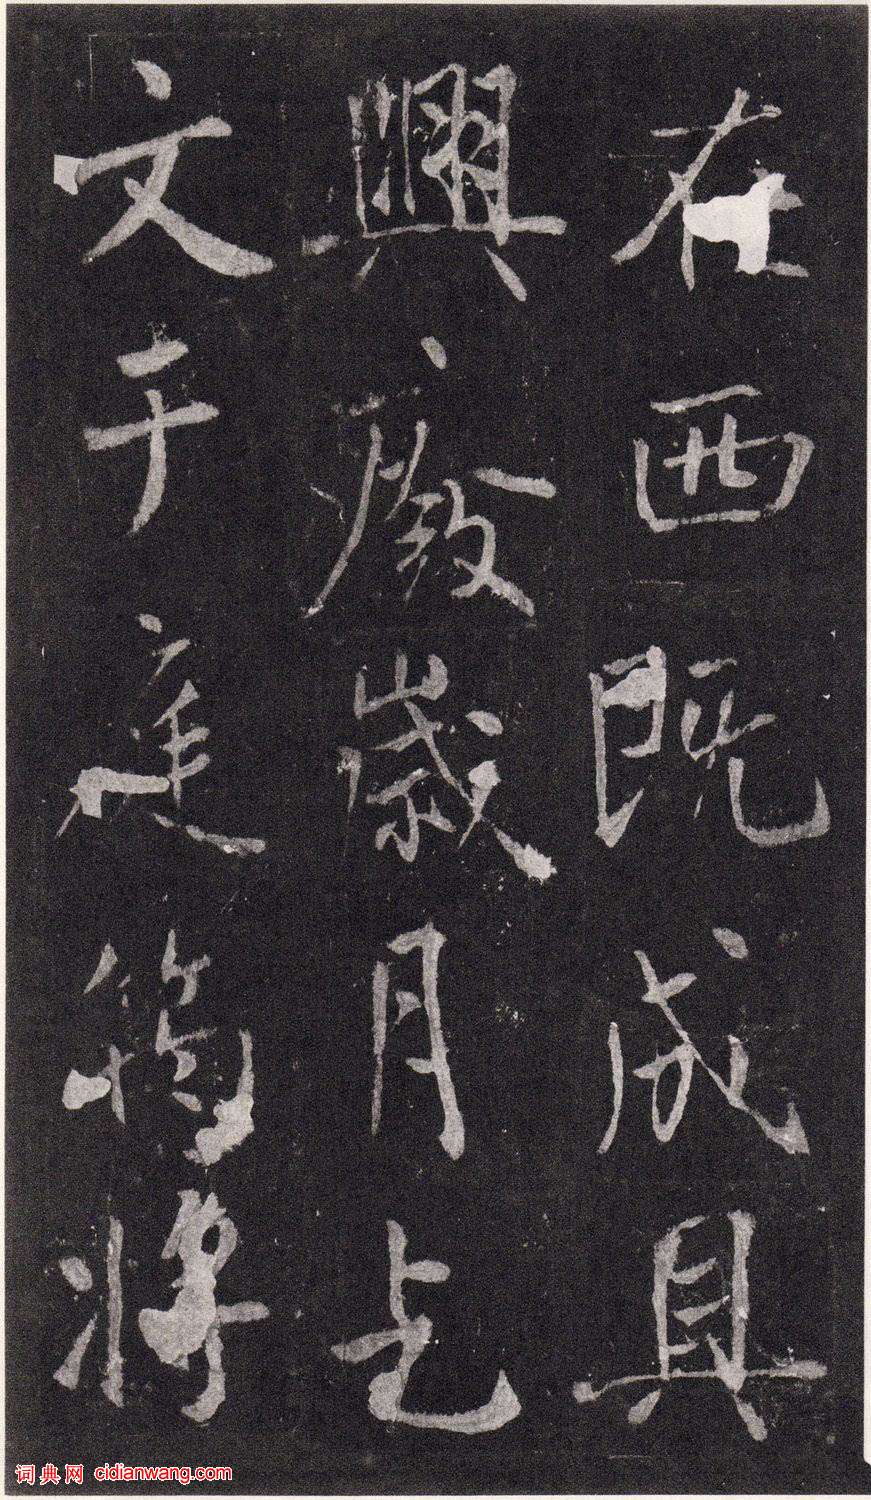 在西既成具
興廢歲月乞
文于庭筠將
词典网 cidianwang.com